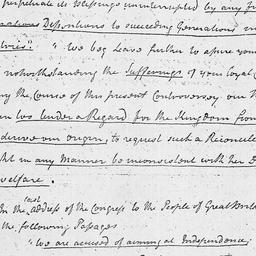 perpetuate its Blessings uninterrupted by any
Dissentions to succeeding Generations in
" We beg Leave further to assure you
notwithstanding the Sufferings of your loyal
the Course of this present Controversy our
too tender a Regard for the Kingdom from
derive our origin, to request such a Reconcil
in any Manner be inconsistent with her
welfare.
In the last address of the Congress to the People of Great
the following Passages
"We are accused of aiming at Independence;